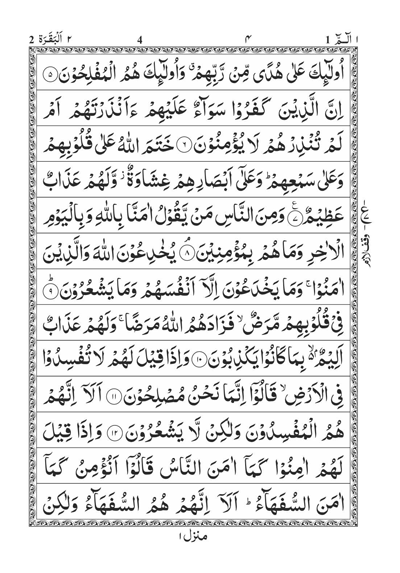 ٢ اَلْبَقَرَة 2 4 ٤ ١ الٓمّٓ 1
اُولٰٓئِكَ عَلٰى هُدًى مِّنْ رَّبِّهِمْ ۗ وَاُولٰٓئِكَ هُمُ الْمُفْلِحُوْنَ ۝٥
اِنَّ الَّذِيْنَ كَفَرُوْا سَوَآءٌ عَلَيْهِمْ ءَاَنْذَرْتَهُمْ اَمْ
لَمْ تُنْذِرْهُمْ لَا يُؤْمِنُوْنَ ۝٦ خَتَمَ اللّٰهُ عَلٰى قُلُوْبِهِمْ
وَعَلٰى سَمْعِهِمْ ؕ وَعَلٰٓى اَبْصَارِهِمْ غِشَاوَةٌ ؗ وَّلَهُمْ عَذَابٌ
عَظِيْمٌ ۝٧ وَمِنَ النَّاسِ مَنْ يَّقُوْلُ اٰمَنَّا بِاللّٰهِ وَبِالْيَوْمِ
الْاٰخِرِ وَمَا هُمْ بِمُؤْمِنِيْنَ ۝٨ يُخٰدِعُوْنَ اللّٰهَ وَالَّذِيْنَ
اٰمَنُوْا ۚ وَمَا يَخْدَعُوْنَ اِلَّآ اَنْفُسَهُمْ وَمَا يَشْعُرُوْنَ ۝٩
فِيْ قُلُوْبِهِمْ مَّرَضٌ ۙ فَزَادَهُمُ اللّٰهُ مَرَضًا ۚ وَلَهُمْ عَذَابٌ
اَلِيْمٌۢ ۙ بِمَا كَانُوْا يَكْذِبُوْنَ ۝١٠ وَاِذَا قِيْلَ لَهُمْ لَا تُفْسِدُوْا
فِي الْاَرْضِ ۙ قَالُوْٓا اِنَّمَا نَحْنُ مُصْلِحُوْنَ ۝١١ اَلَآ اِنَّهُمْ
هُمُ الْمُفْسِدُوْنَ وَلٰكِنْ لَّا يَشْعُرُوْنَ ۝١٢ وَاِذَا قِيْلَ
لَهُمْ اٰمِنُوْا كَمَآ اٰمَنَ النَّاسُ قَالُوْٓا اَنُؤْمِنُ كَمَآ
اٰمَنَ السُّفَهَآءُ ؕ اَلَآ اِنَّهُمْ هُمُ السُّفَهَآءُ وَلٰكِنْ
وقف لازم
منزل ١